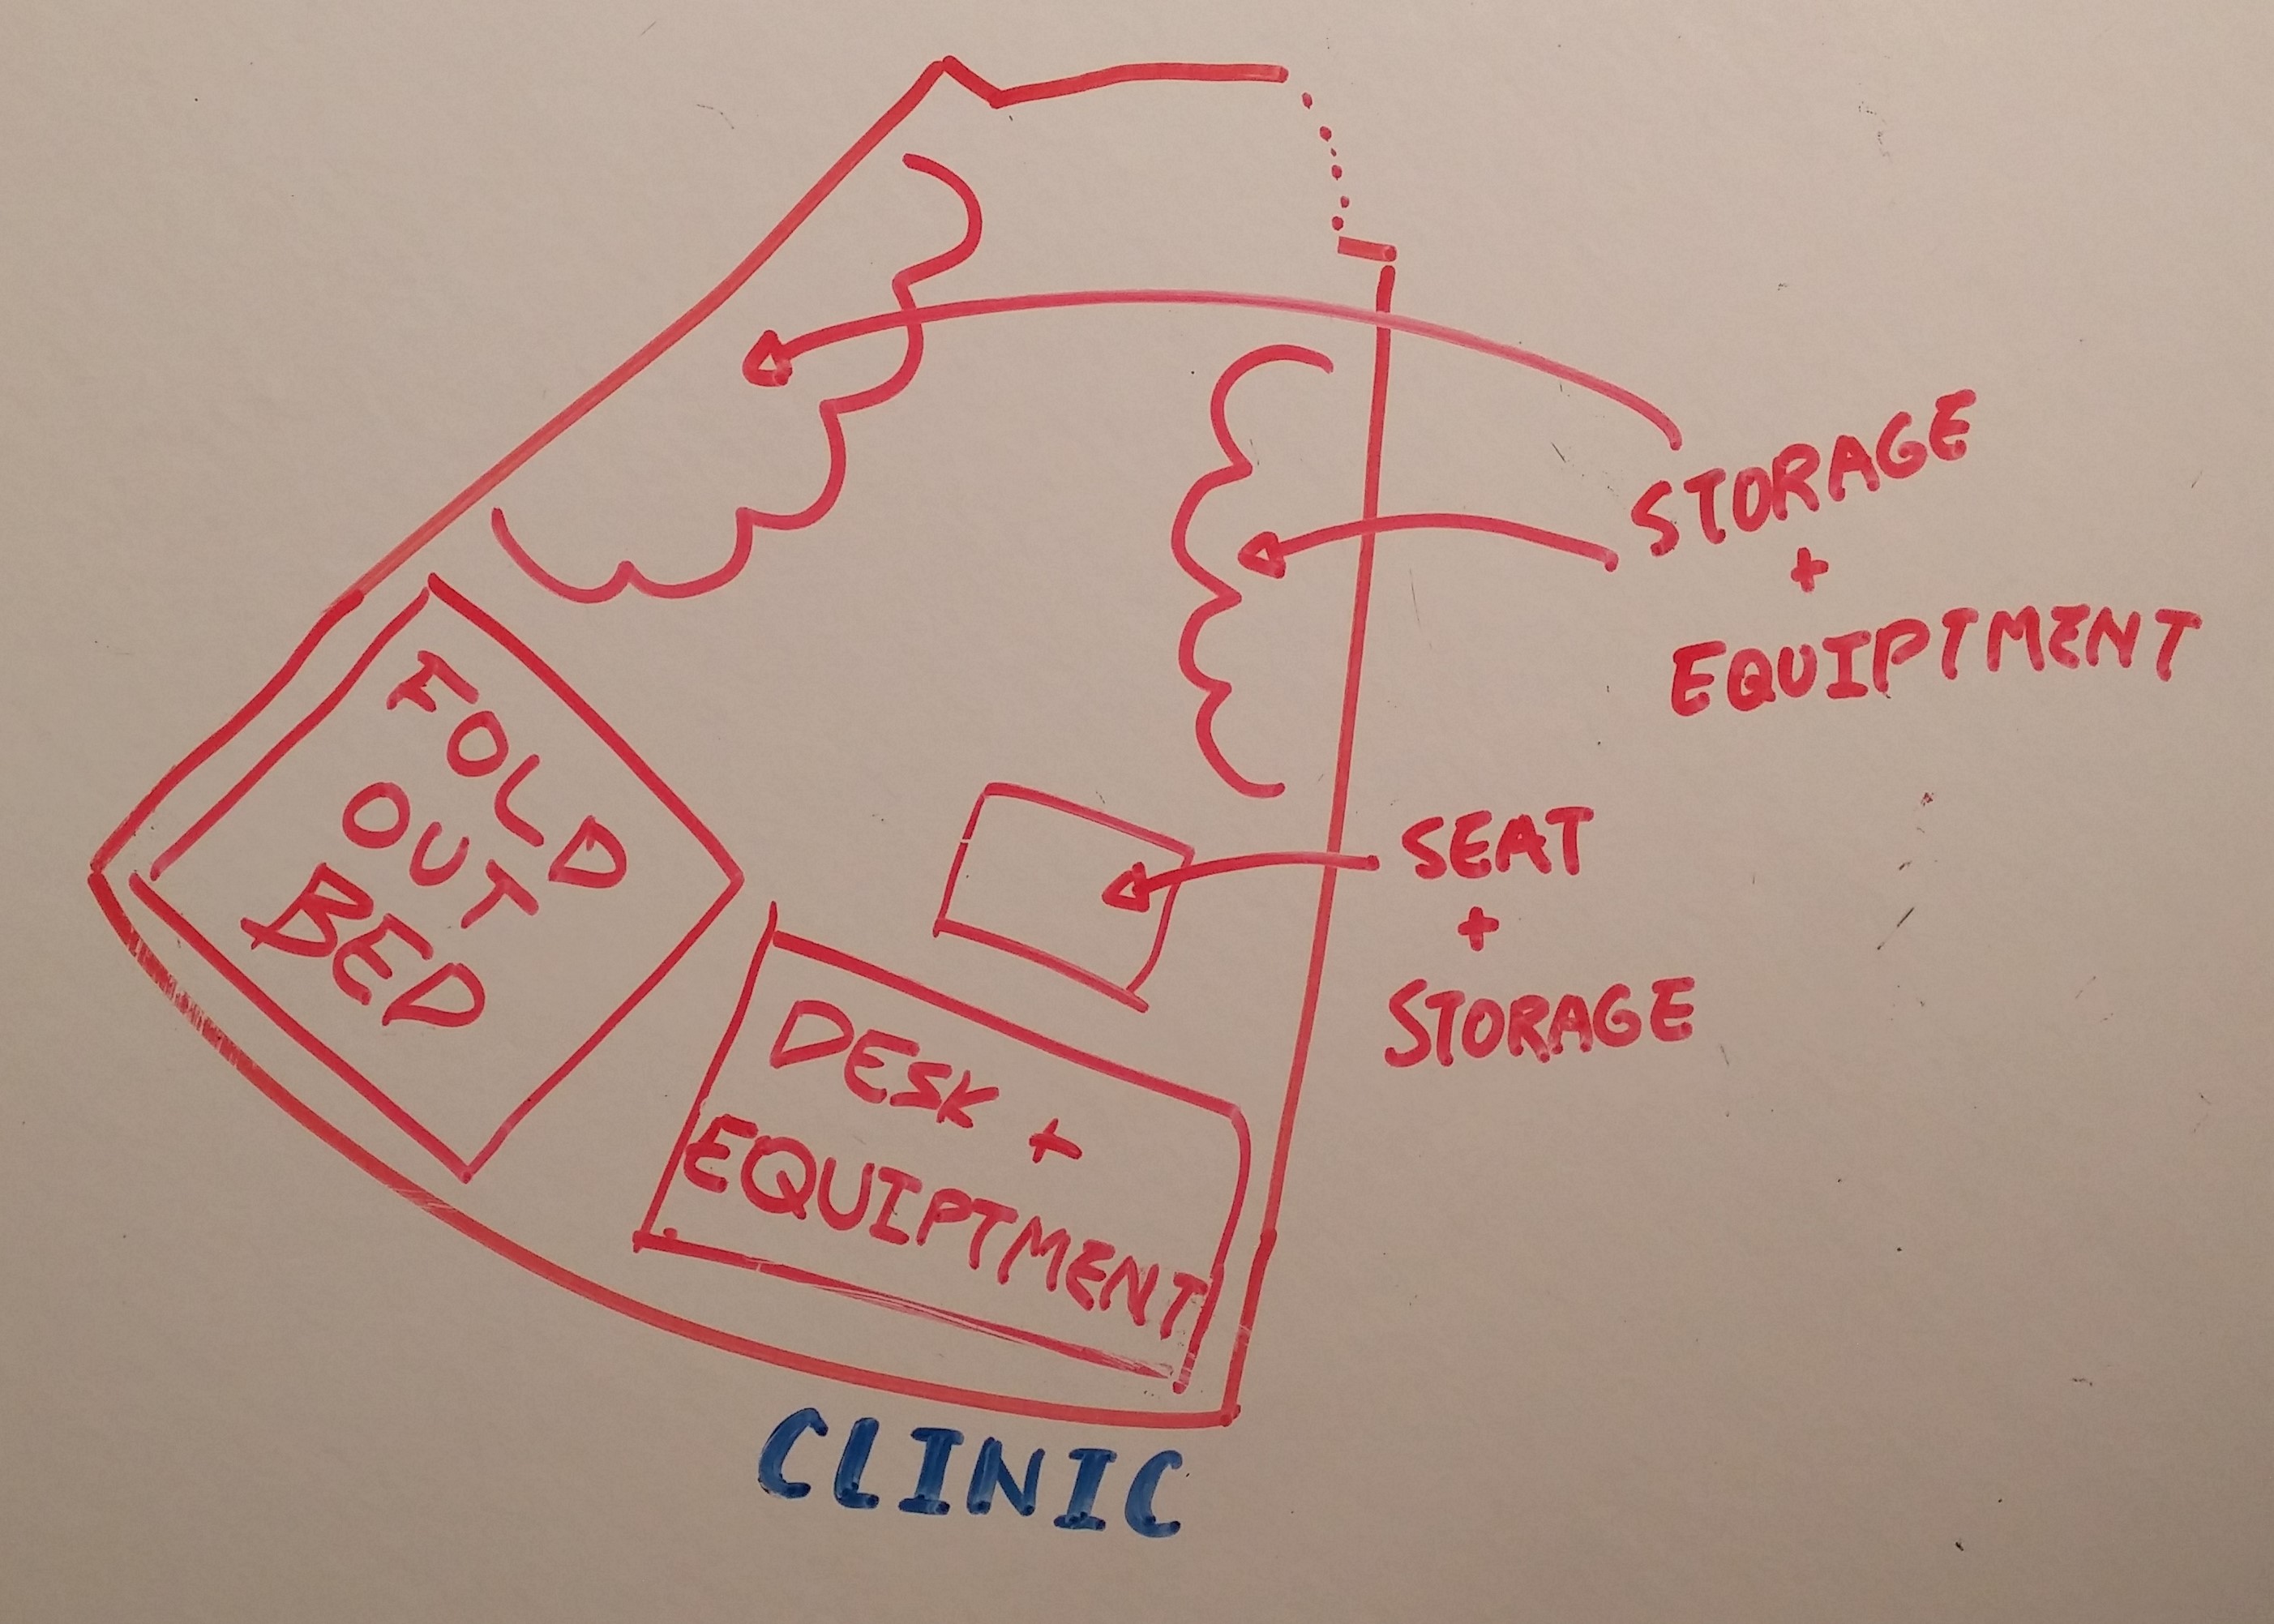 STORAGE
+
EQUIPTMENT
FOLD
OUT
BED
SEAT
+
STORAGE
DESK +
EQUIPTMENT
CLINIC